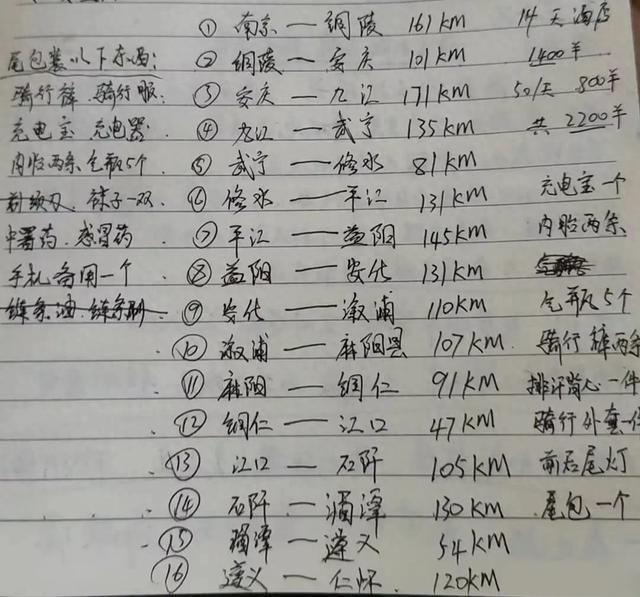 ① 南京 — 铜陵 161KM 14天酒店
尾包装以下东西: ② 铜陵 — 安庆 101KM 1400羊
骑行裤 骑行服. ③ 安庆 — 九江 171KM 50/天 800羊
充电宝 充电器. ④ 九江 — 武宁 135KM 共 2200羊
内胎两条 气瓶5个 ⑤ 武宁 — 修水 81KM
袜子一双 ⑥ 修水 — 平江 131KM 充电宝一个
中暑药. 感冒药 ⑦ 平江 — 益阳 145KM 内胎两条
手机备用一个 ⑧ 益阳 — 安化 131KM
链条油 链条刷 ⑨ 安化 — 溆浦 110KM 气瓶5个
⑩ 溆浦 — 麻阳县 107KM 骑行裤两条
⑪ 麻阳 — 铜仁 91KM 排汗背心一件
⑫ 铜仁 — 江口 47KM 骑行外套一件
⑬ 江口 — 石阡 105KM 前后尾灯
⑭ 石阡 — 湄潭 130KM 尾包一个
⑮ 湄潭 — 遵义 54KM
⑯ 遵义 — 仁怀 120KM